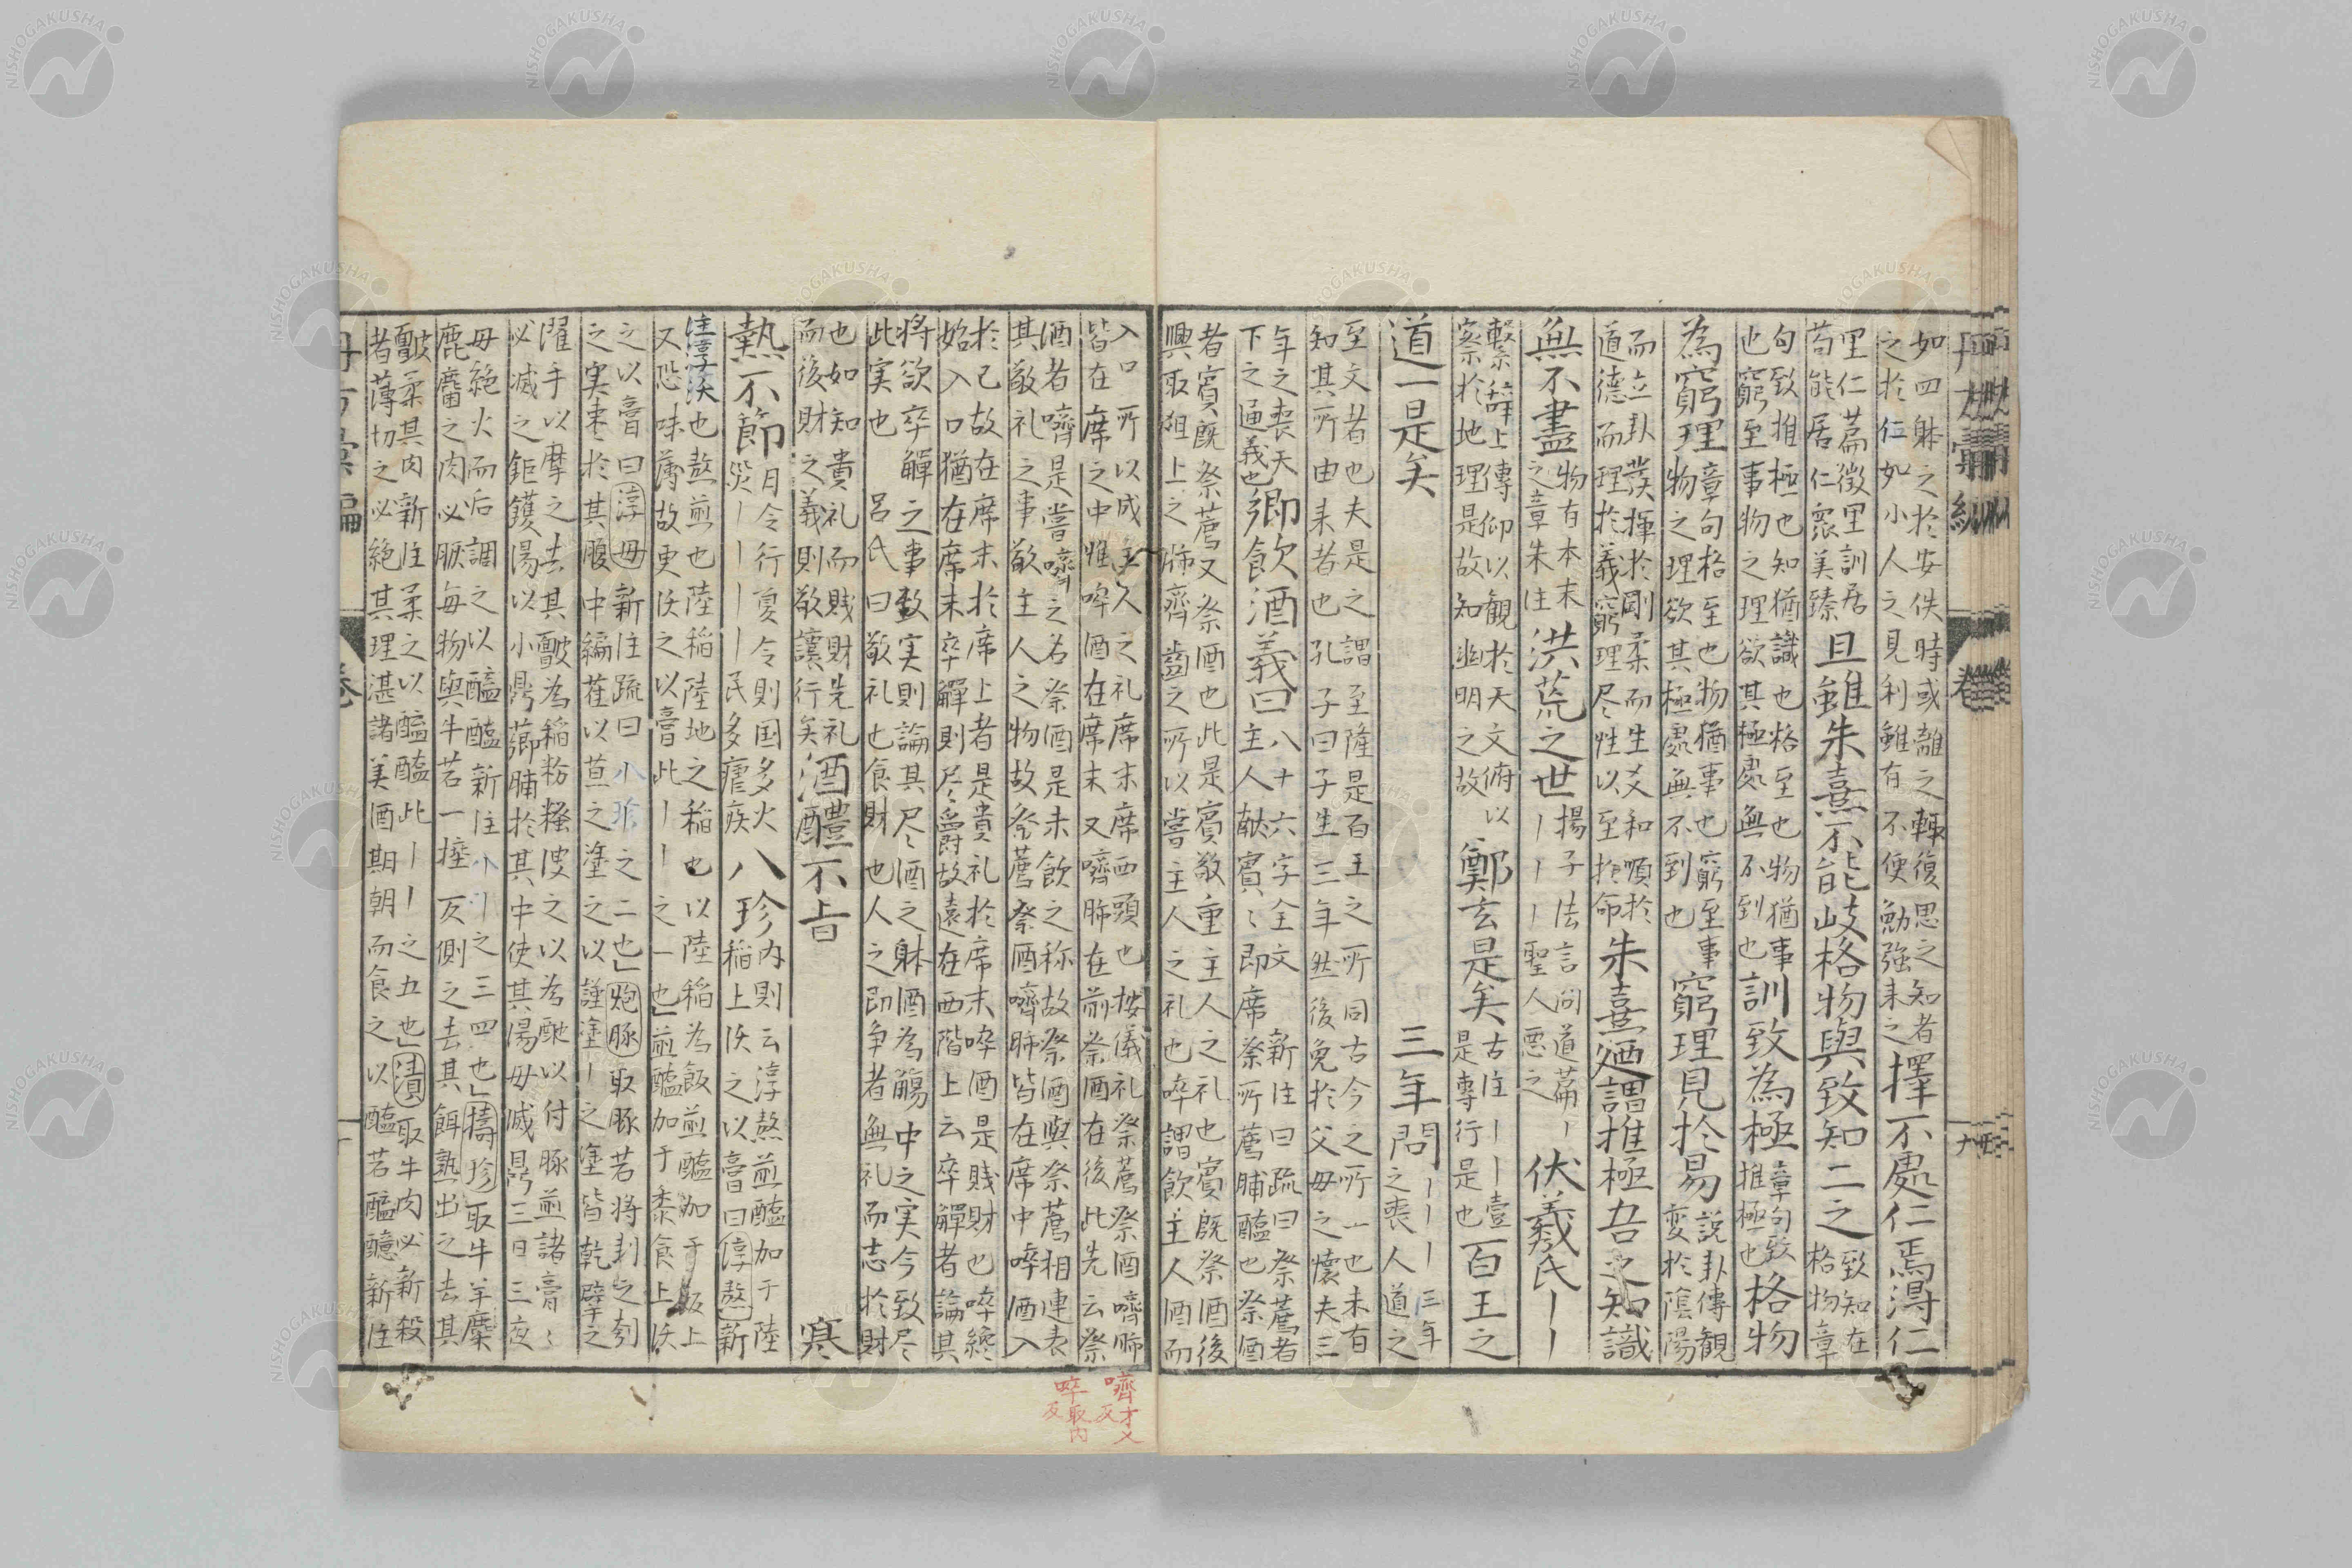 如四躰之於安佚時或離之輙復思之知者
之於仁如小人之見利雖有不便勉強来之
擇不處仁焉得仁
里仁篇徵里訓居
苟能居仁衆美臻
且雖朱熹不能岐格物與致知二之
致知在
格物章
句致推極也知猶識也格至也物猶事
也窮至事物之理欲其極處無不到也
訓致為極
章句致
推極也
格物
為窮理
章句格至也物猶事也窮至事
物之理欲其極處無不到也
窮理見於易
説卦傳観
変於陰陽
而立卦發揮於剛柔而生爻和順於
道德而理於義窮理尽性以至於命
朱熹廼謂推極吾之知識
無不盡
物有本末
之章朱注
洪荒之世
揚子法言問道篇
聖人悪之
伏羲氏
繋辞上傳仰以観於天文俯以
察於地理是故知幽明之故
鄭玄是矣
古注
壹
是專行是也
百王之
道一是矣
三年問
三年
之喪人道之
至文者也夫是之謂至隆是百王之所同古今之所一也未有
知其所由来者也孔子曰子生三年然後免於父母之懐夫三
年之喪天
下之通義也
郷飲酒義曰
八十六字全文
主人献賓〻即席
新注曰疏曰祭薦者
祭所薦脯醢也祭酒
者賓既祭薦又祭酒也此是賓敬重主人之礼也賓既祭酒後
興取俎上之肺嚌齒之所以嘗主人之礼也啐謂飲主人酒而
入口所以成主人之礼席末席西頭也按儀礼祭薦祭酒嚌肺
皆在席之中惟啐酒在席末又嚌肺在前祭酒在後此先云祭
酒者嚌是嘗嚌之名祭酒是未飲之称故祭酒與祭薦相連表
其敬礼之事敬主人之物故祭薦祭酒嚌肺皆在席中啐酒入
於己故在席末於席上者是貴礼於席末啐酒是賤財也啐纔
始入口猶在席末卒觶則尽爵故遠在西階上云卒觶者論其
将欲卒觶之事致実則論其尽酒之躰酒為觴中之実今致尽
此実也
呂氏曰敬礼也食財也人之所争者無礼而志於財
也如知貴礼而賤財先礼
而後財之義則敬讓行矣
酒醴不旨
寒
熱不節
月令行夏令則国多火
災
民多瘧疾
八珍
内則云淳熬煎醢加于陸
稲上沃之以膏曰淳熬新
注淳沃也熬煎也陸稲陸地之稲也以陸稲為飯煎醢加于飯上
又恐味薄故更沃之以膏此
之一也煎醢加于黍食上沃
之以膏曰淳毋新注疏曰八珍之二也炮豚取豚若将刲之刳
之実棗於其腹中編萑以苴之塗之以謹塗
之塗皆乾擘之
濯手以摩之去其皽為稲粉糔溲之以為酏以付豚煎諸膏〻
必滅之鉅鑊湯以小鼎薌脯於其中使其湯毋滅鼎三日三夜
毋絶火而后調之以醯醢新注八
之三四也擣珍取牛羊麋
鹿麕之肉必脄毎物與牛若一捶反側之去其餌熟出之去其
皽柔其肉新注柔之以醯醢此
之五也漬取牛肉必新殺
者薄切之必絶其理湛諸美酒期朝而食之以醢若醯醷新注
嚌才乂
反
啐取内
反